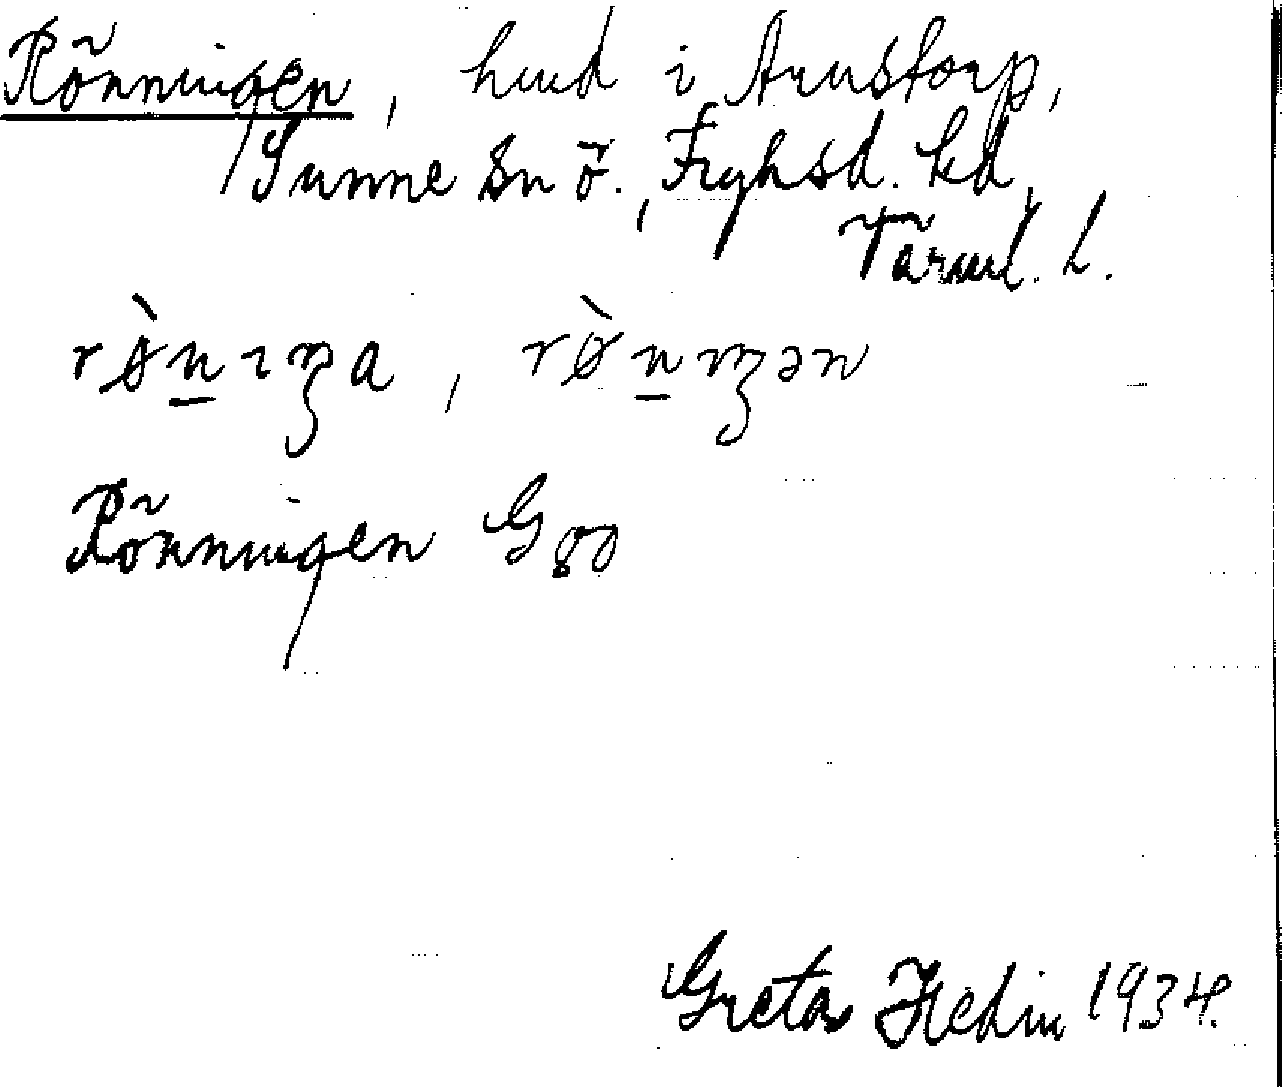 Rönningen, hmd i Arnstorp,
Sunne sn ö., Fryksd. hd,
Värml. l.
rø̀n̲ıŋa, rø̀n̲ıŋən
Rönningen G 80
Greta Hedin 1934.